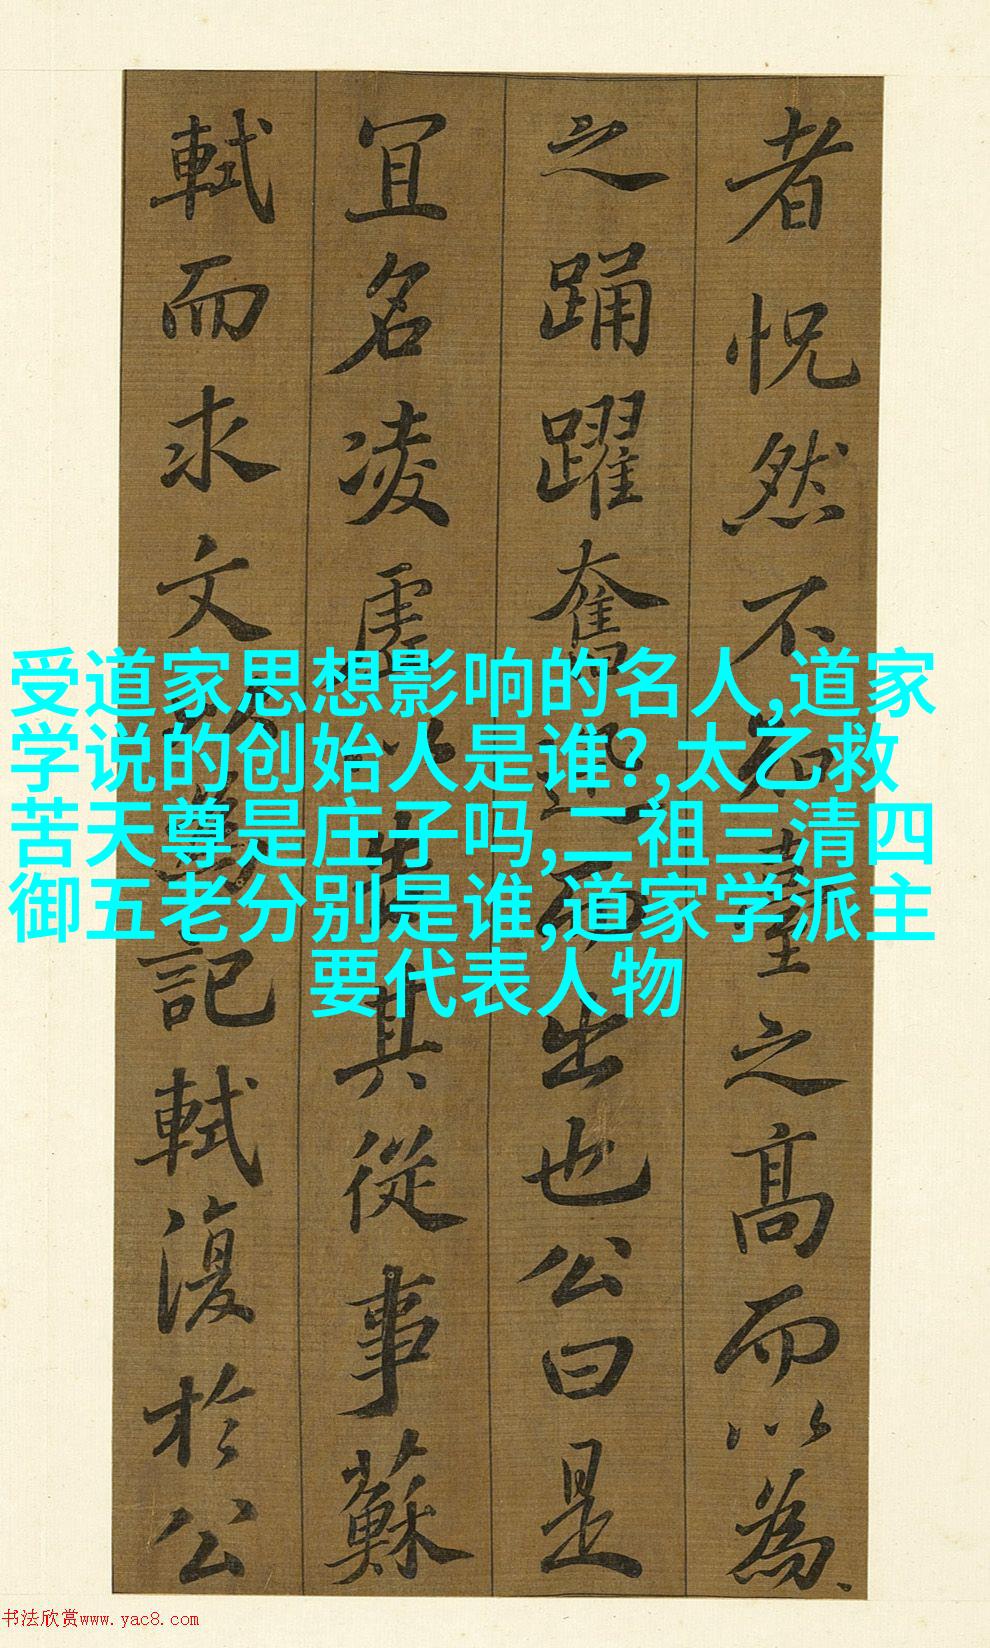 者怳然不知臺之高而以為
之踊躍奮迅而出也公曰是
宜名凌虛以告其從事蘇
軾而求文以為記軾復於公
受道家思想影响的名人,道家
学说的创始人是谁?,太乙救
苦天尊是庄子吗,二祖三清四
御五老分别是谁,道家学派主
要代表人物
书法欣赏www.yac8.com